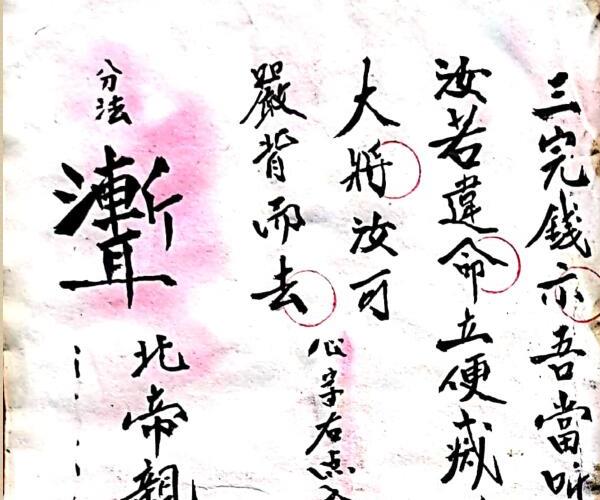 三完錢亦吾當
汝若違命立便
大將汝可
嚴背而去
心字右
分法
魙
北帝親